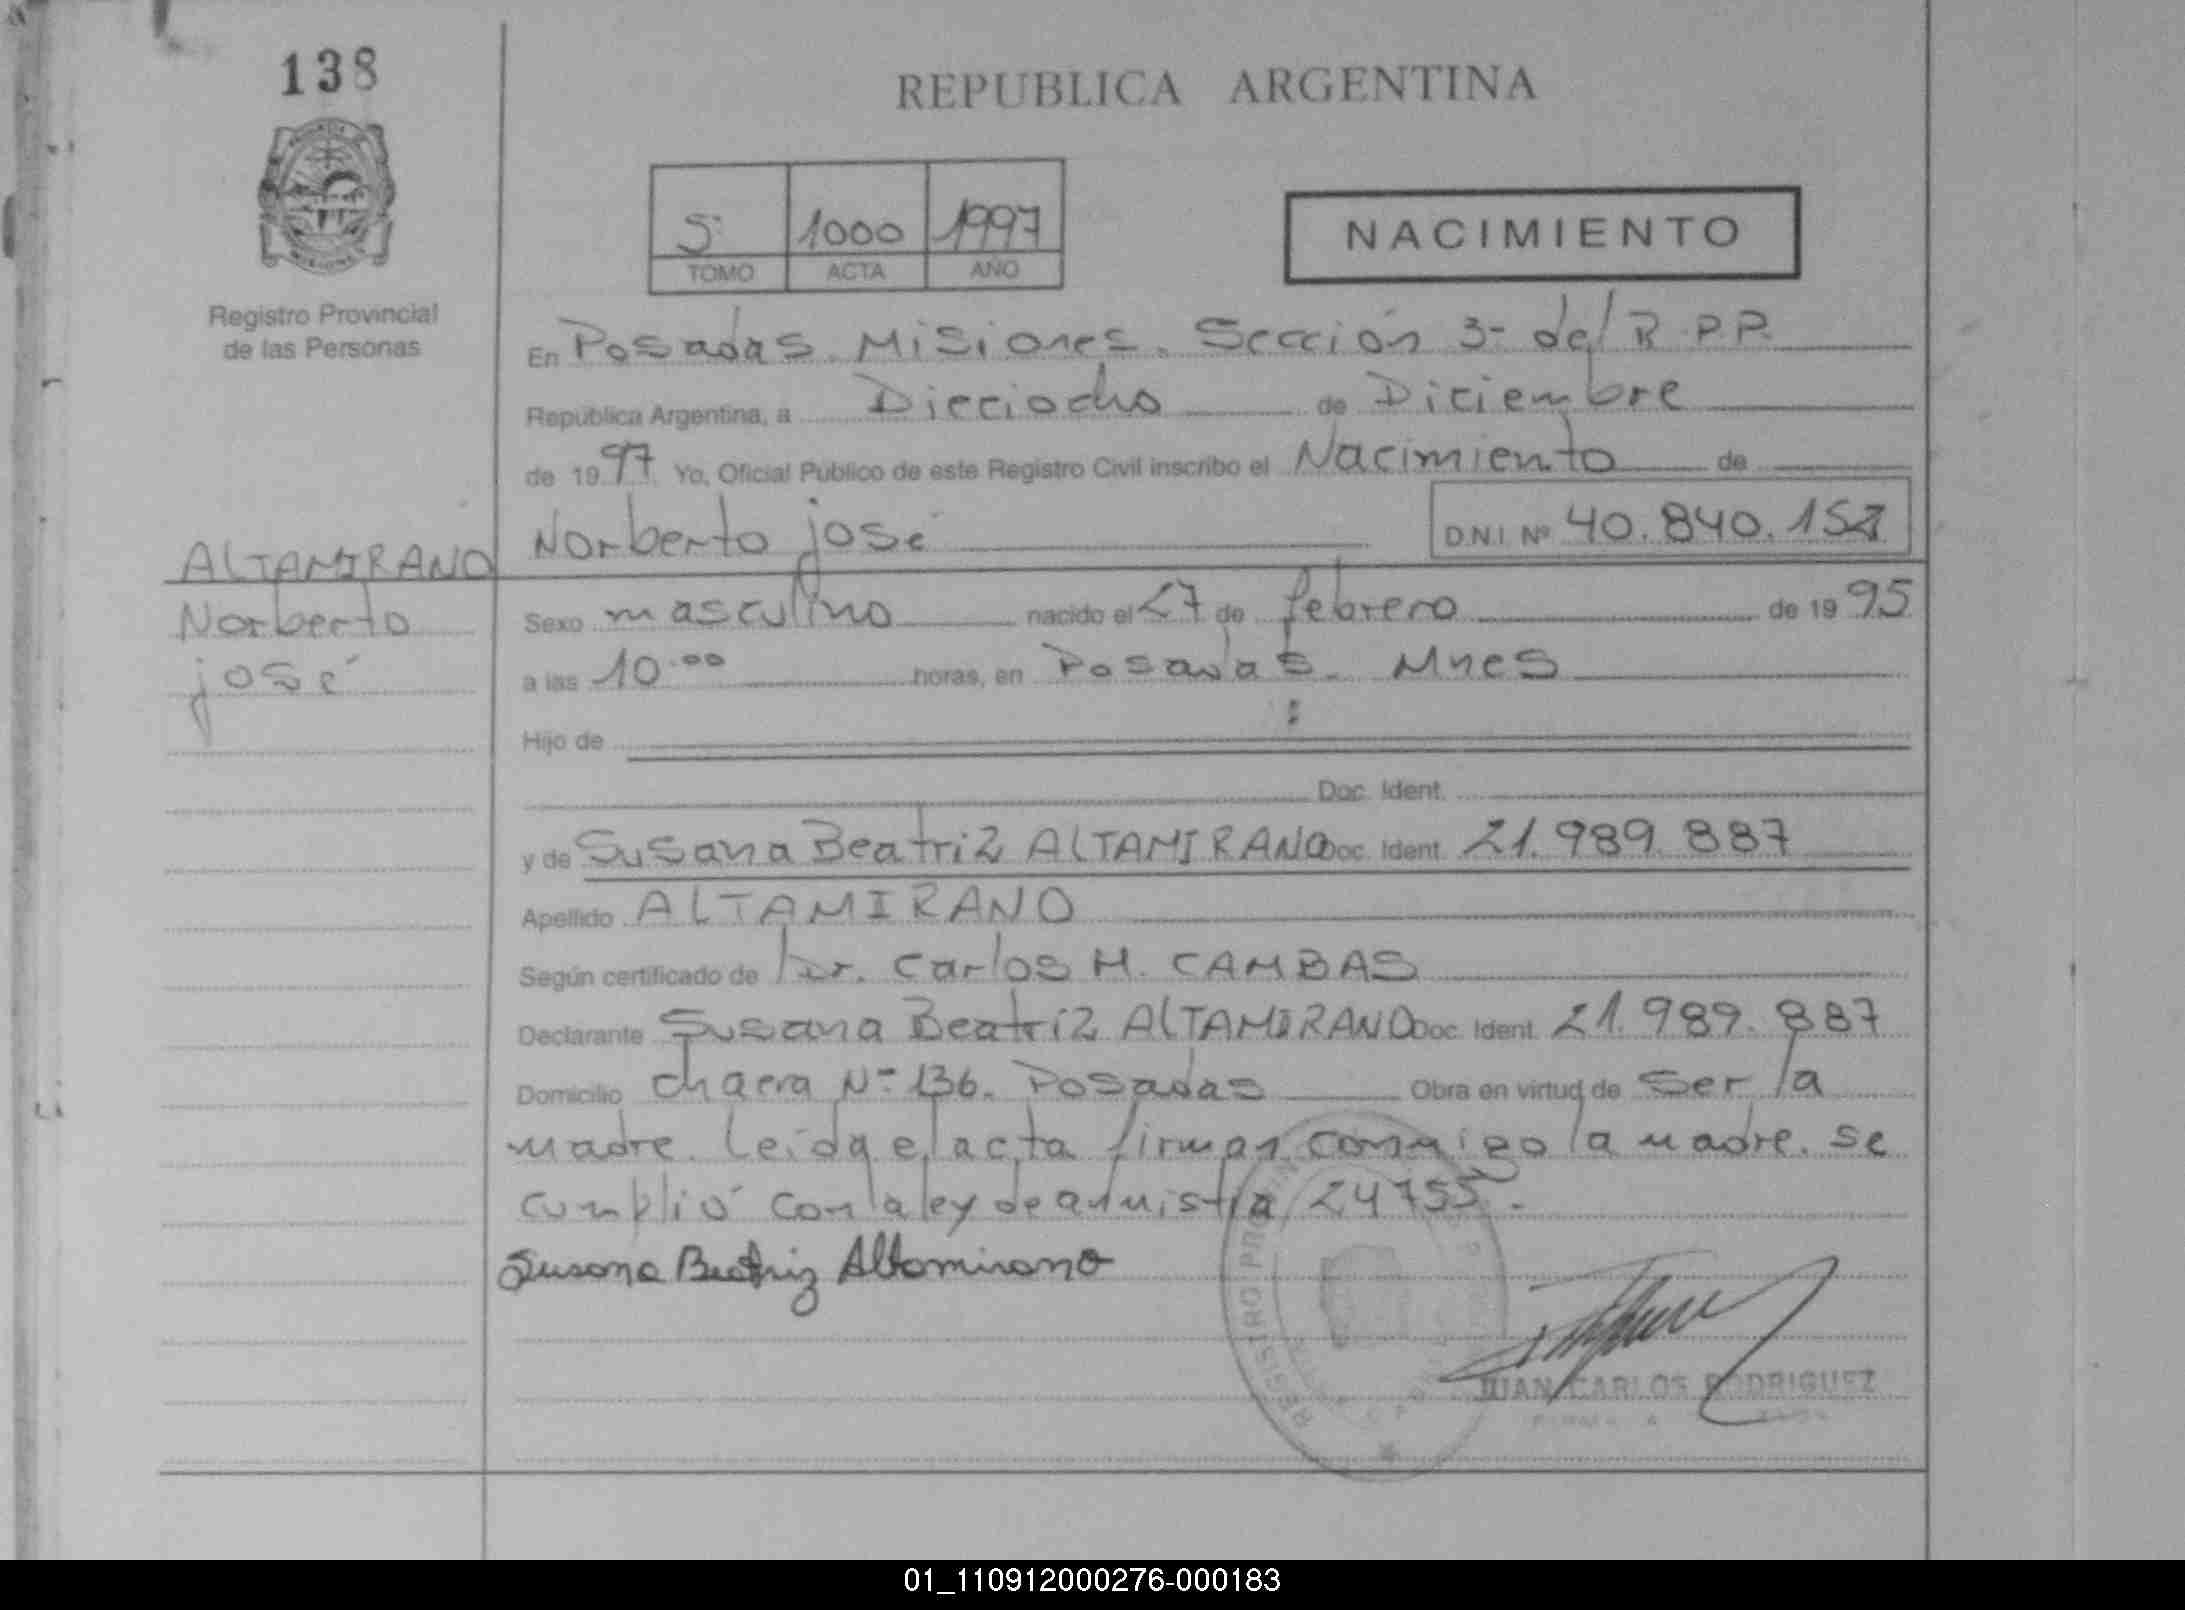 138
REPUBLICA ARGENTINA
5 1000 1997
TOMO ACTA AÑO
NACIMIENTO
Registro Provincial
de las Personas
En Posadas. Misiones. Sección 3- del R.P.P.
República Argentina, a Dieciocho de Diciembre
de 1997. Yo, Oficial Público de este Registro Civil inscribo el Nacimiento de
Norberto josé D.N.I. Nº 40.840.152
ALTAMIRANO
Norberto
josé
Sexo masculino nacido el 27 de febrero de 1995
a las 10.00 horas, en Posadas. Mnes
Hijo de
Doc. Ident.
y de Susana Beatriz ALTAMIRANO Doc. Ident. 21.989.887
Apellido ALTAMIRANO
Según certificado de Dr. Carlos H. CAMBAS
Declarante Susana Beatriz ALTAMIRANO Doc. Ident. 21.989.887
Domicilio chacra Nº 136. Posadas Obra en virtud de ser la
madre. leida el acta firman conmigo la madre. se
cumplió con la ley de amnistia 24755.-
Susana Beatriz Altamirano
REGISTRO PROVIN
JUAN CARLOS RODRIGUEZ
01_110912000276-000183